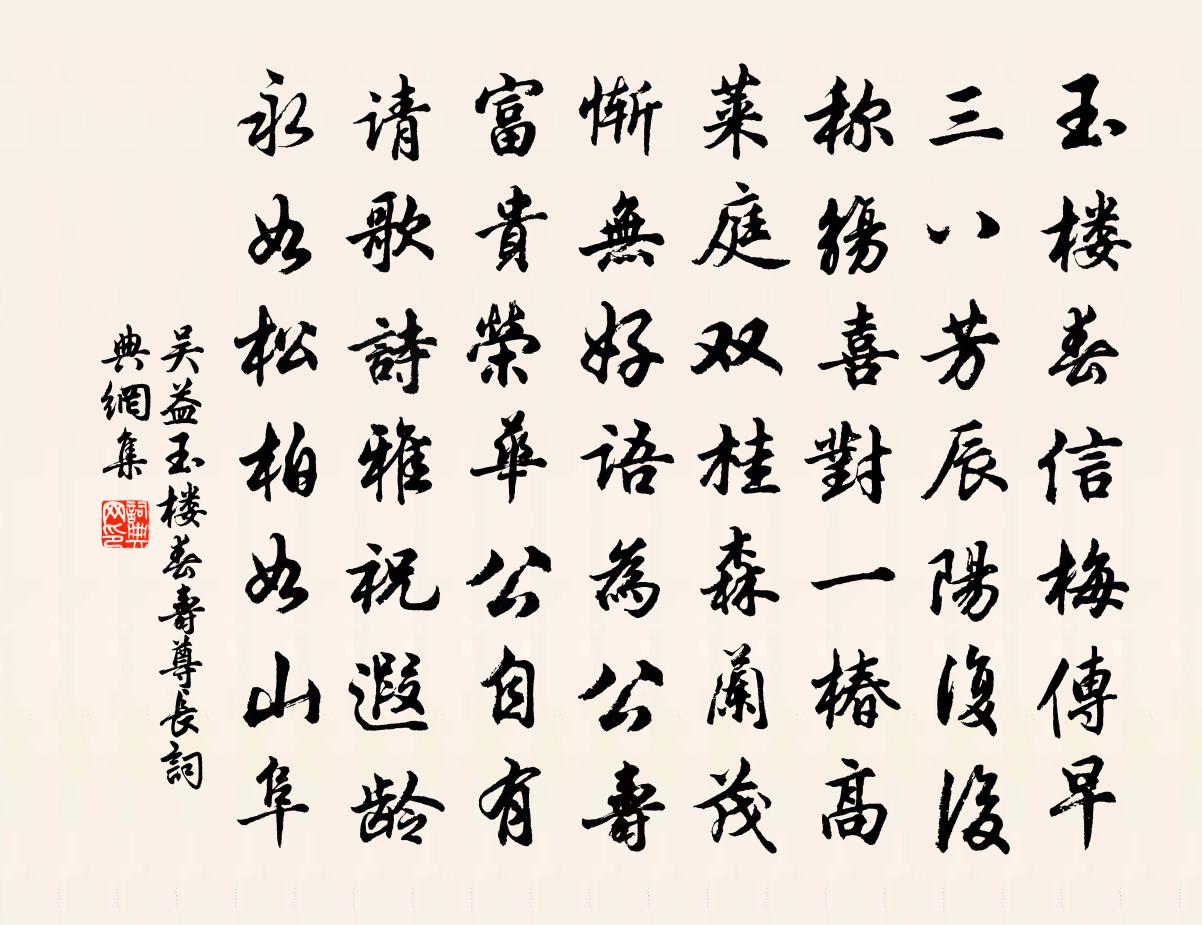 玉楼春信梅傳早
三八芳辰陽復後
称觴喜對一椿高
莱庭双桂森蘭茂
惭無好语為公壽
富貴榮華公自有
请歌詩雅祝遐龄
永如松柏如山阜
吴益玉楼春壽尊長詞
典網集
詞典网印